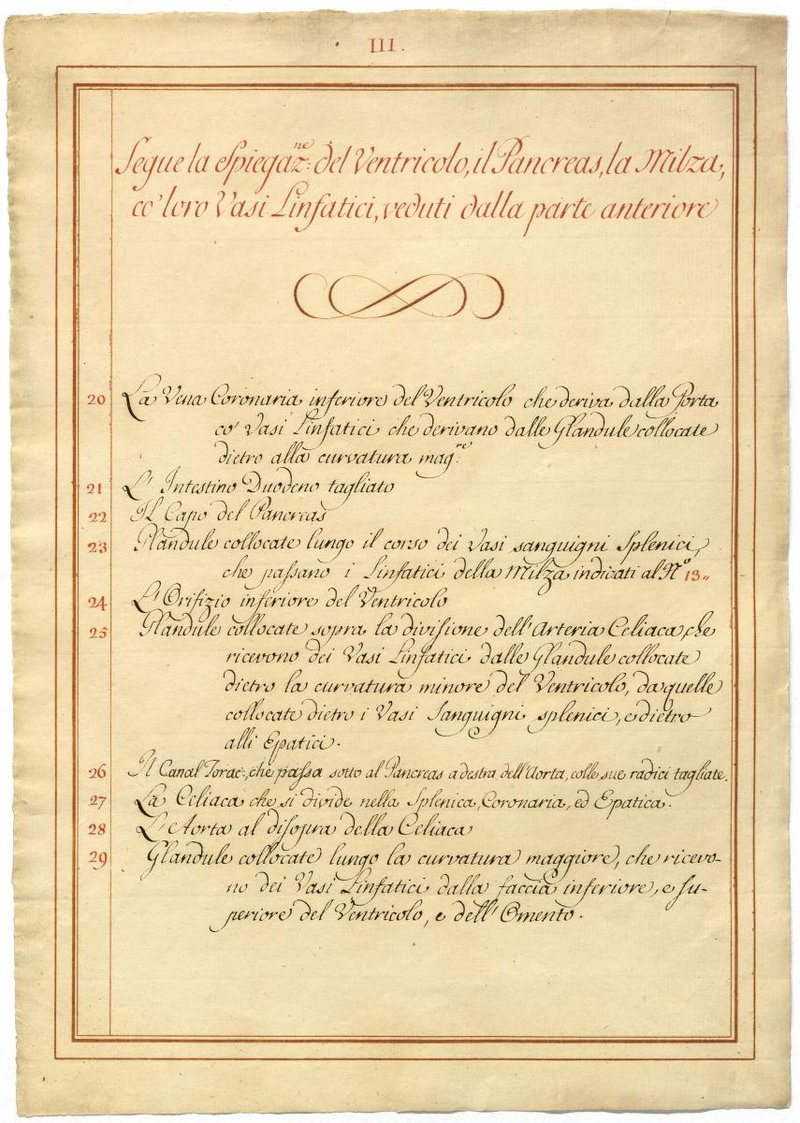 III.
Segue la Spiegaz:ne del Ventricolo, il Pancreas, la Milza,
co' loro Vasi Linfatici, veduti dalla parte anteriore
20 La Vena Coronaria inferiore del Ventricolo che deriva dalla Porta
co' Vasi Linfatici che derivano dalle Glandule collocate
dietro alla curvatura mag:re
21 L' Intestino Duodeno tagliato
22 Il Capo del Pancreas
23 Glandule collocate lungo il corso dei Vasi sanguigni Splenici,
che passano i Linfatici della Milza indicati al No 13"
24 L'Orifizio inferiore del Ventricolo
25 Glandule collocate sopra la divisione dell'Arteria Celiaca, che
ricevono dei Vasi Linfatici dalle Glandule collocate
dietro la curvatura minore del Ventricolo, da quelle
collocate dietro i Vasi Sanguigni splenici, e dietro
alli Epatici.
26 Il Canal Torac:, che passa sotto al Pancreas a destra dell'Aorta, colle sue radici tagliate.
27 La Celiaca che si divide nella Splenica, Coronaria, ed Epatica.
28 L'Aorta al disopra della Celiaca
29 Glandule collocate lungo la curvatura maggiore, che ricevo-
no dei Vasi Linfatici dalla faccia inferiore, e su-
periore del Ventricolo, e dell'Omento.